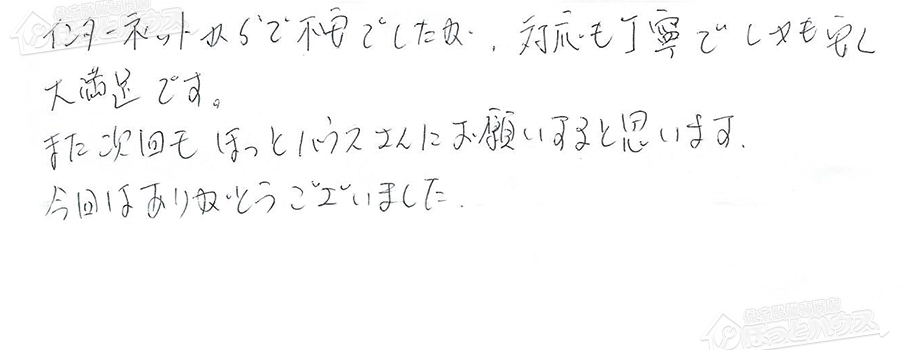 インターネットからで不安でしたが、対応も丁寧でしかも安く
大満足です。
また次回もほっとハウスさんにお願いすると思います.
今回はありがとうございました.
住宅設備専門店
ほっとハウス
住宅設備専門店
ほっとハウス